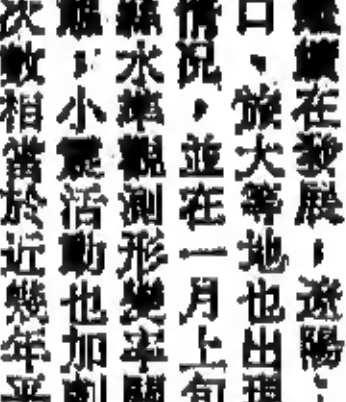 續在發展,遼陽、
口、旅大等地也出現
情況,並在一月上旬
水準觀測形變率關
;小震活動也加劇
次數相當於近幾年平